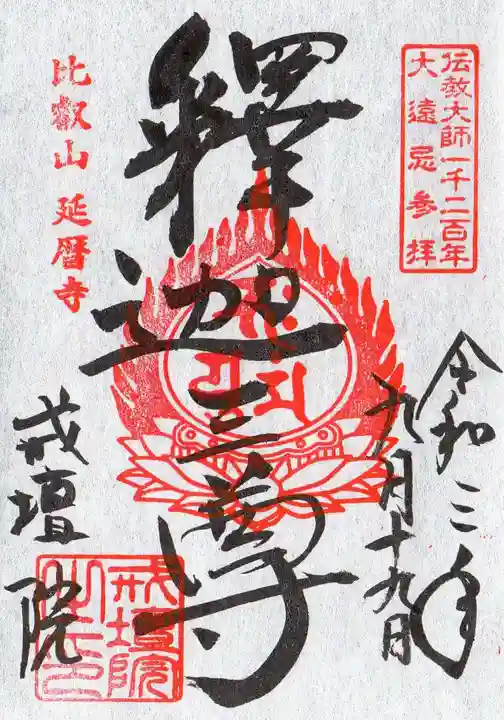 伝教大師一千二百年
大遠忌参拝
令和三年
九月十九日
釋迦三尊
比叡山 延暦寺
戒壇院
戒壇院
之印